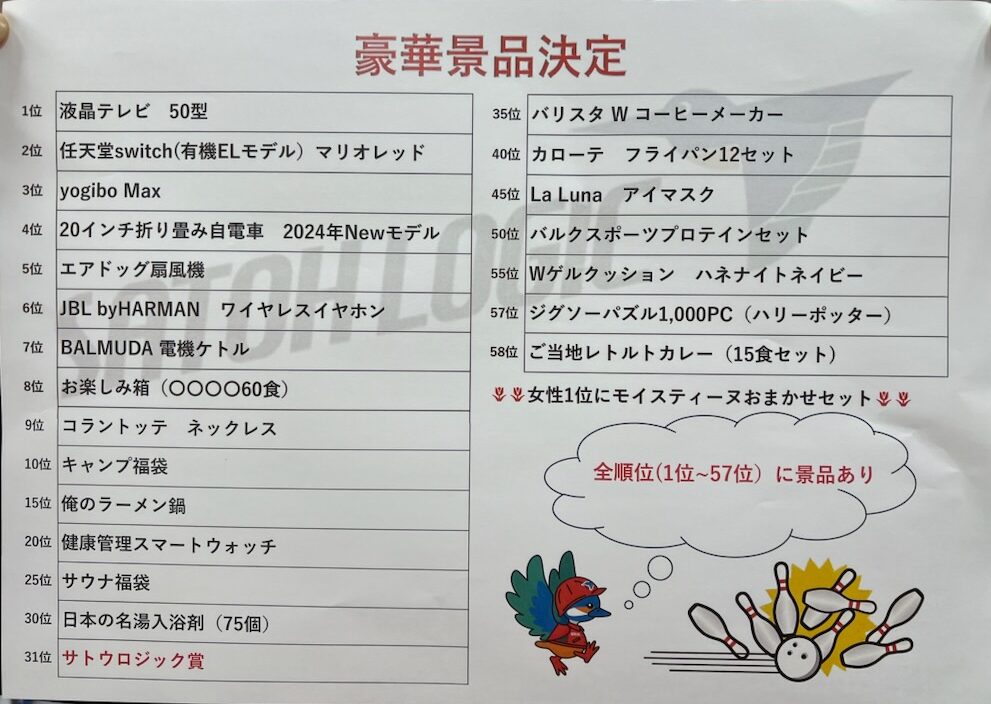 豪華景品決定
1位 液晶テレビ 50型
2位 任天堂switch(有機ELモデル) マリオレッド
3位 yogibo Max
4位 20インチ折り畳み自電車 2024年Newモデル
5位 エアドッグ扇風機
6位 JBL byHARMAN ワイヤレスイヤホン
7位 BALMUDA 電機ケトル
8位 お楽しみ箱（〇〇〇〇60食）
9位 コラントッテ ネックレス
10位 キャンプ福袋
15位 俺のラーメン鍋
20位 健康管理スマートウォッチ
25位 サウナ福袋
30位 日本の名湯入浴剤（75個）
31位 サトウロジック賞
35位 バリスタ W コーヒーメーカー
40位 カローテ フライパン12セット
45位 La Luna アイマスク
50位 バルクスポーツプロテインセット
55位 Wゲルクッション ハネナイトネイビー
57位 ジグソーパズル1,000PC（ハリーポッター）
58位 ご当地レトルトカレー（15食セット）
女性1位にモイスティーヌおまかせセット
全順位(1位~57位）に景品あり
SATOH LOGIC